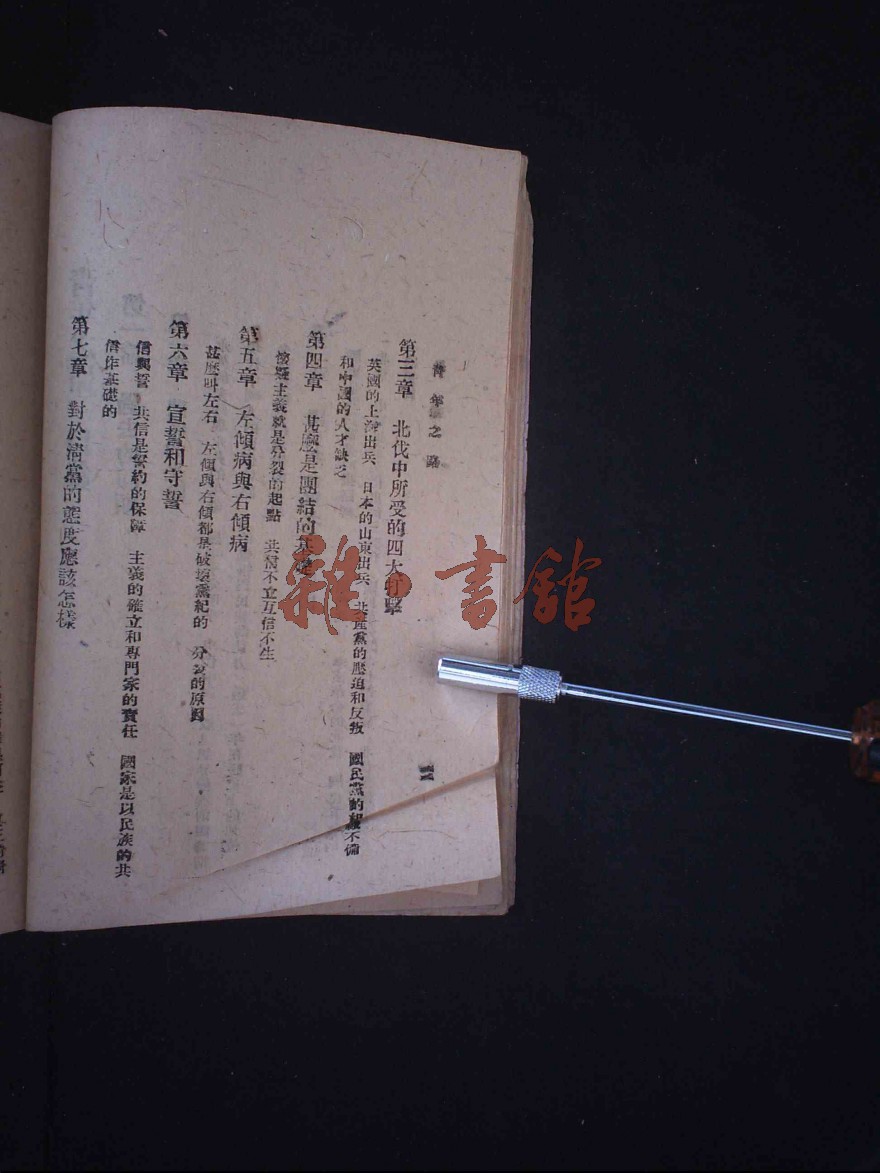 青年之路
二
第三章 北伐中所受的四大打擊
英國的上海出兵 日本的山東出兵 共產黨的壓迫和反叛 國民黨的組織不備
和中國的人才缺乏
第四章 甚麼是團結的基礎
懷疑主義就是分裂的起點 共信不立互信不生
第五章 左傾病與右傾病
甚麼叫左右 左傾與右傾都是破壞黨紀的 分裂的原因
第六章 宣誓和守誓
信與誓 共信是誓約的保障 主義的確立和專門家的責任 國家是以民族的共
信作基礎的
第七章 對於清黨的態度應該怎樣
雜·書館